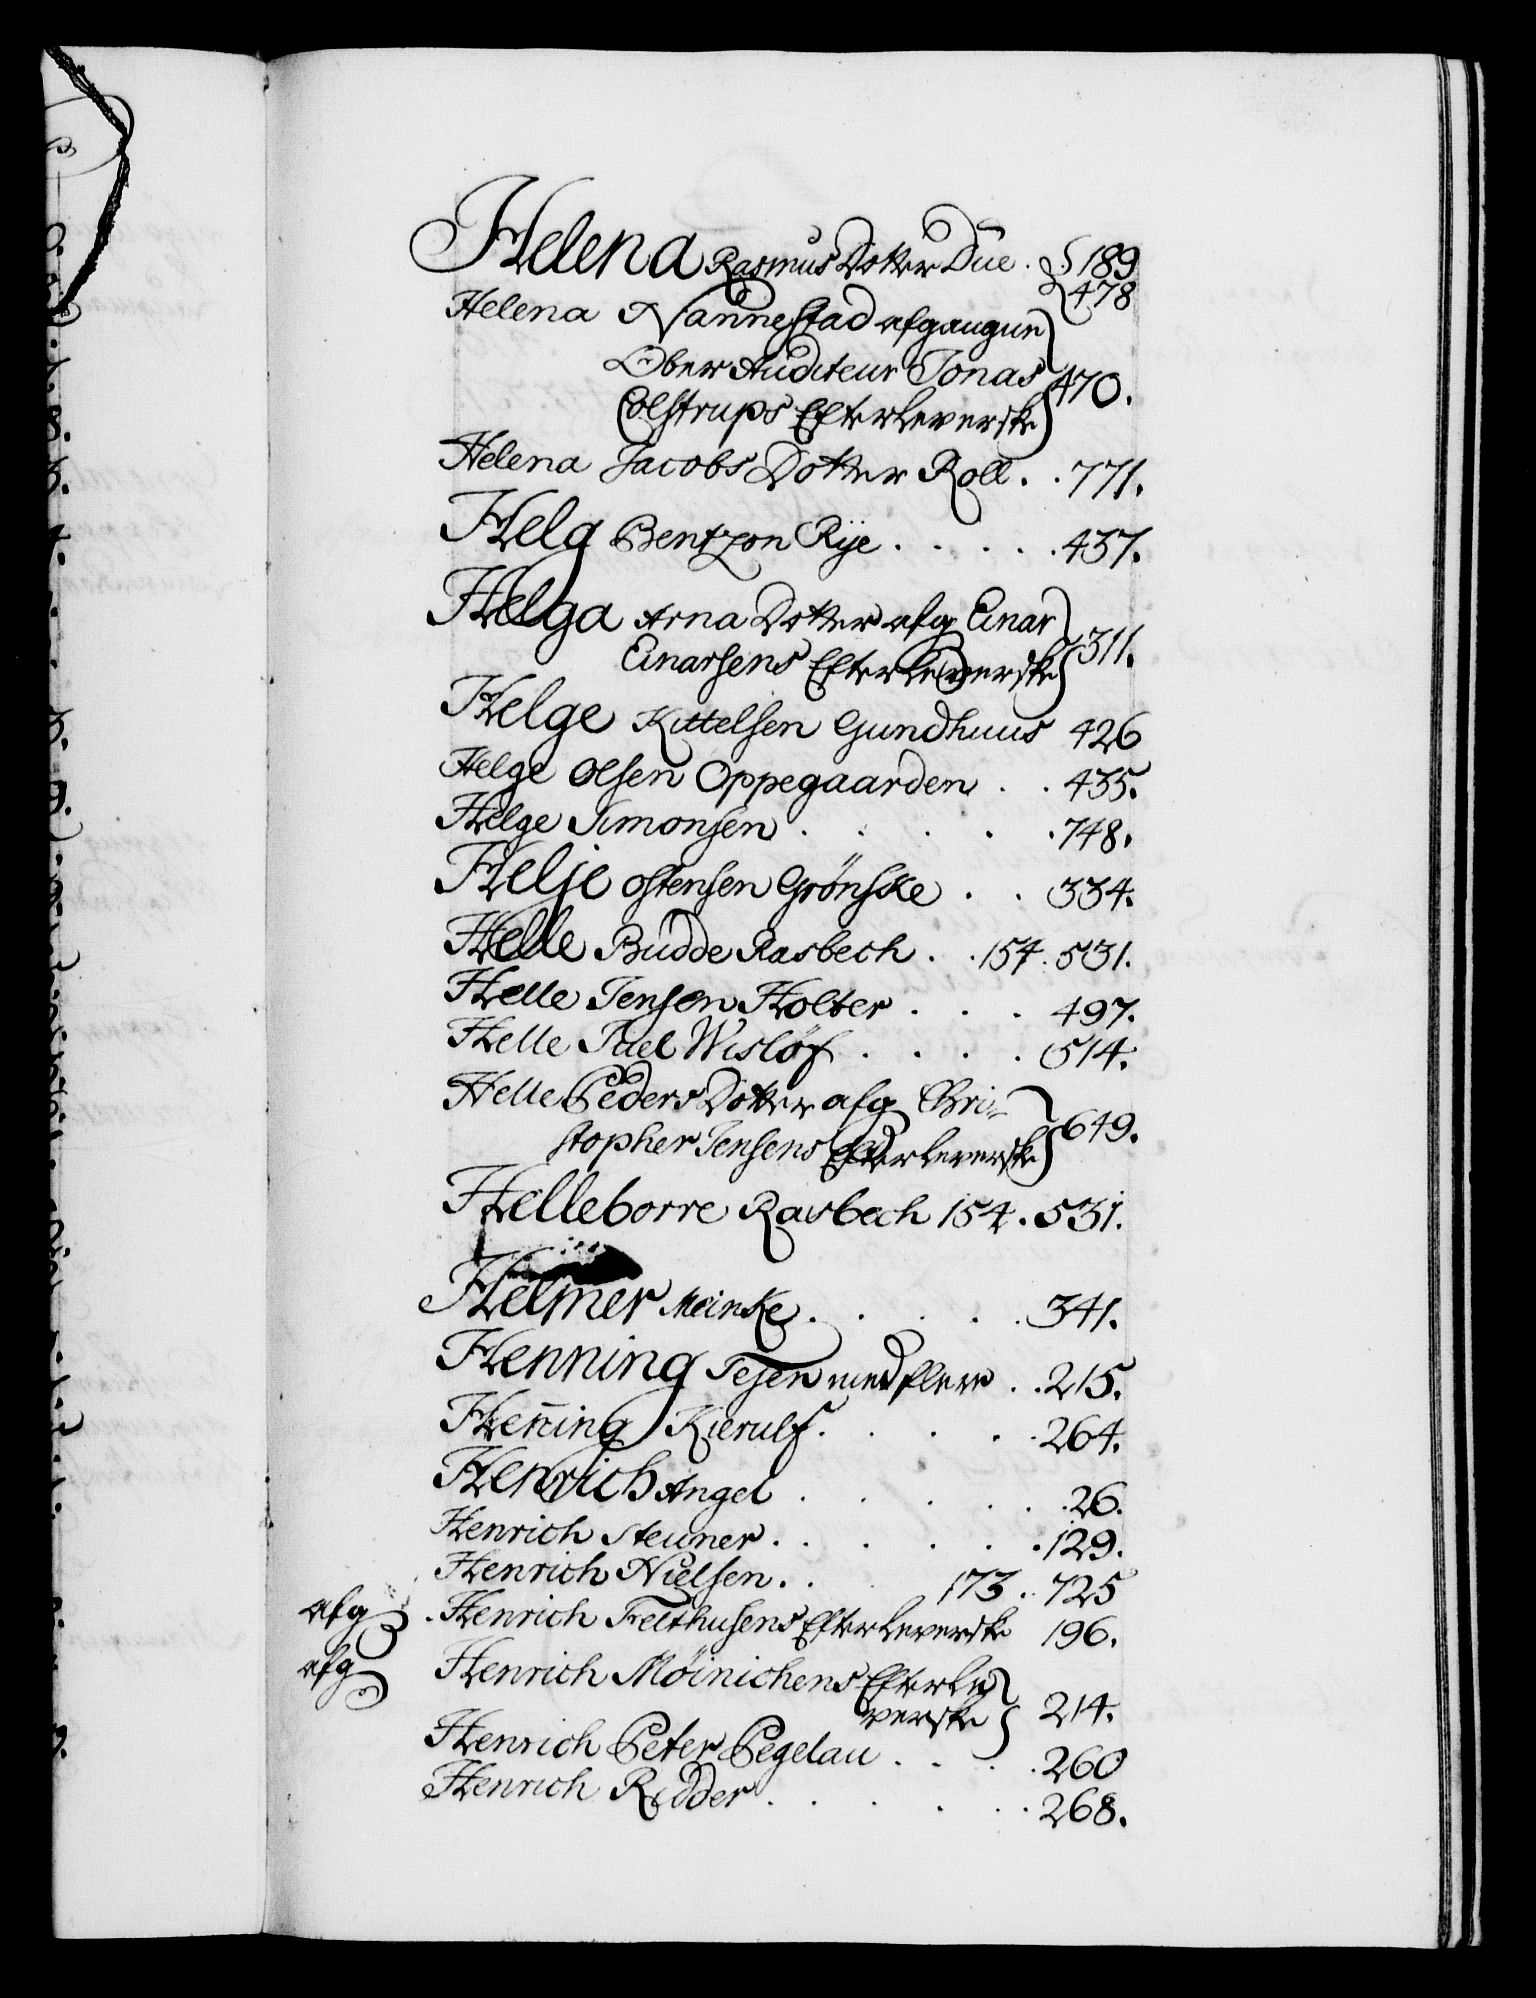 Helena Rasmus Dotter Due . 189
478
Helena Nannestad afgangne
Ober Auditeur Jonas 470.
Colstrups Efterleverske
Helena Jacobs Dotter Roll . . 771.
Helg Bentzon Rÿe . . . . . 437.
Helga Arna Dotter afg Einar
Einarsens Efterleverske 311.
Helge Kittelsen Gundhuus 426
Helge Olsen Oppegaarden . . 435.
Helge Simonsen . . . . . 748.
Helje Ostensen Grönske . . 334.
Helle Budde Rasbech . . 154. 531.
Helle Jensen Holter . . . 497.
Helle Juel Wislöf . . . . 514.
Helle Peders Dotter afg Chri-
stopher Jensens Efterleverske 649.
Helleborre Rasbech 154. 531.
Helmer Meinke . . . . . 341.
Henning Tesen med flere . . 215.
Hen̄ing Kierulf . . . . . 264.
Henrich Angel . . . . . 26.
Henrich Steuner . . . . . 129.
Henrich Nielsen . . 173 . 725
afg . Henrich Felthusens Efterleverske 196.
afg Henrich Möinichens Efterle
verske 214.
Henrich Peter Pegelau . . . . 260
Henrich Ridder . . . . . 268.